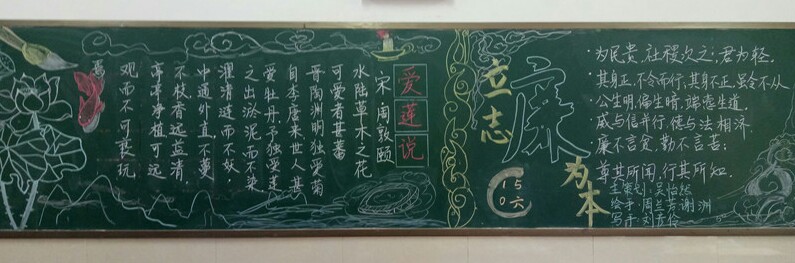 爱莲说
宋 周敦颐
水陆草木之花
可爱者甚蕃
晋陶渊明独爱菊
自李唐来世人甚
爱牡丹予独爱莲
之出淤泥而不染
濯清涟而不妖
中通外直不蔓
不枝香远益清
亭亭净植可远
观而不可亵玩
焉
立志
廉
为本
150六
·为民贵,社稷次之;君为轻.
·其身正,不令而行,其身不正,虽令不从
·公生明,偏生暗,端悫生道.
·威与信并行,德与法相济.
·廉不言贫,勤不言苦;
尊其所闻,行其所知.
主策划:吴怡然
绘手:周兰芳 谢洲
写手:刘芳伶